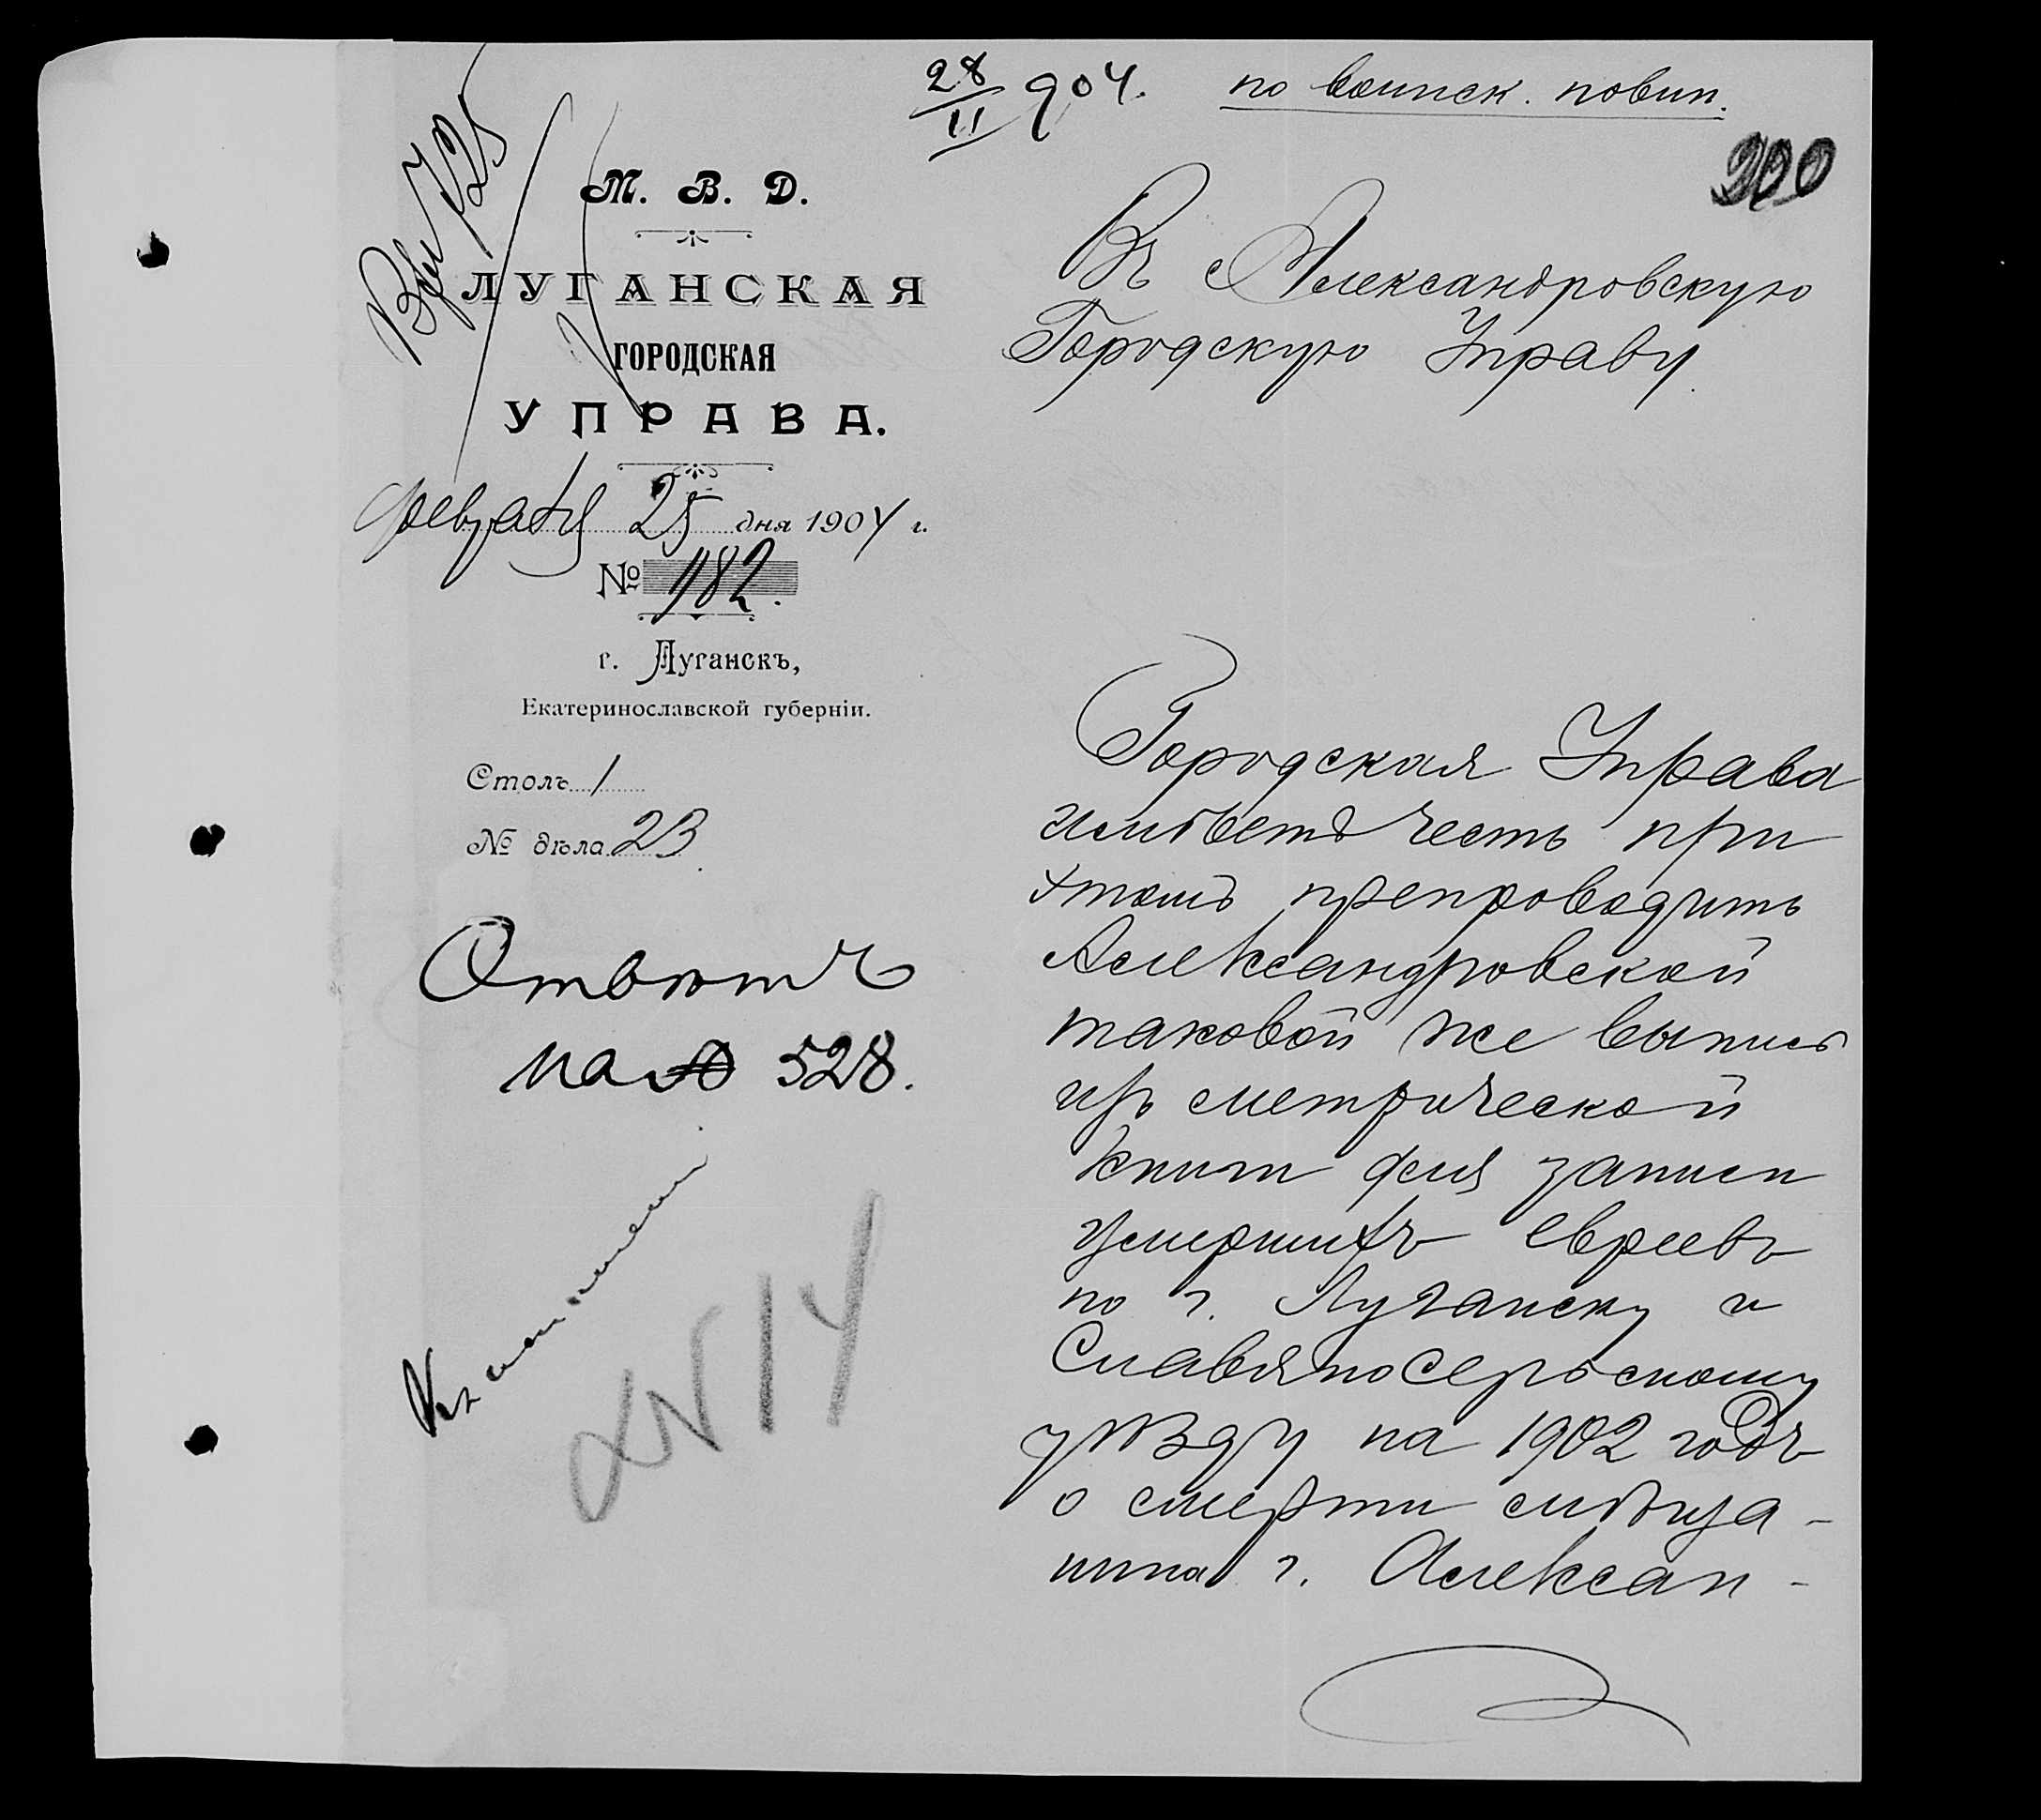 28/II 904. по воинск. повин.
200
Вх 725
М. В. Д.
ЛУГАНСКАЯ
ГОРОДСКАЯ
УПРАВА.
Февраля 25 дня 1904 г.
№ 1182.
г. Луганскъ,
Екатеринославской губерніи.
Столъ 1
№ дѣла 23.
Отвѣтъ
на № 528.
№ 14
Въ Александровскую
Городскую Управу.
Городская Управа
имѣетъ честь при
этомъ препроводить
Александровской
таковой же выпись
изъ метрической
книги для записи
умершихъ евреевъ
по г. Луганску и
Славяносербскому
уѣзду на 1902 годъ
о смерти мѣща-
нина г. Алексан-